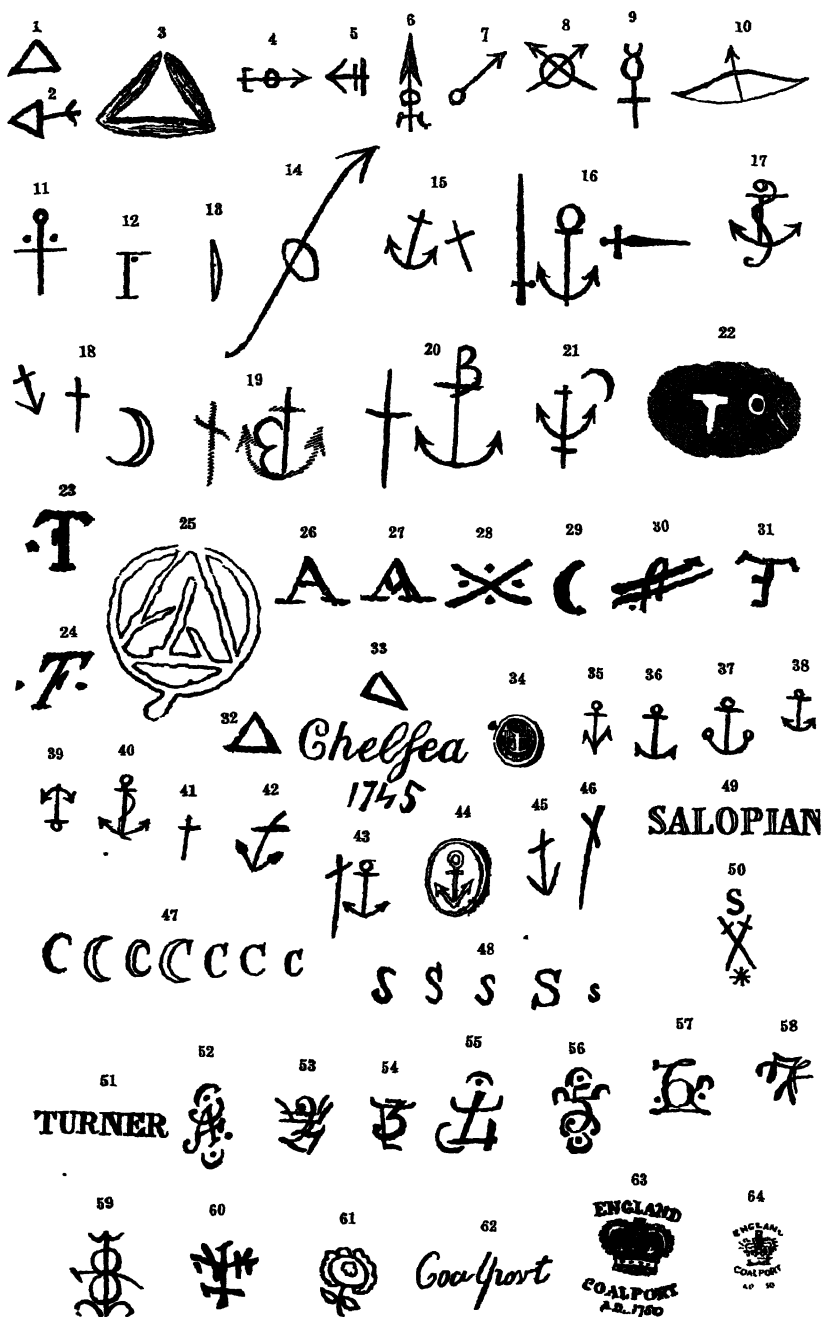 1
2
3
4
5
6
7
8
9
10
11
12
13
14
15
16
17
18
19
20
B
21
22
T
23
T
24
T
25
26
A
27
A
28
29
30
31
T
32
33
Chelsea
1745
34
35
36
37
38
39
40
41
42
43
44
45
46
47
C C C C C C C
48
S S S S s
49
SALOPIAN
50
S
51
TURNER
52
53
54
55
56
57
58
59
60
61
62
Coalport
63
ENGLAND
COALPORT
A.D. 1750
64
ENGLAND
COALPORT